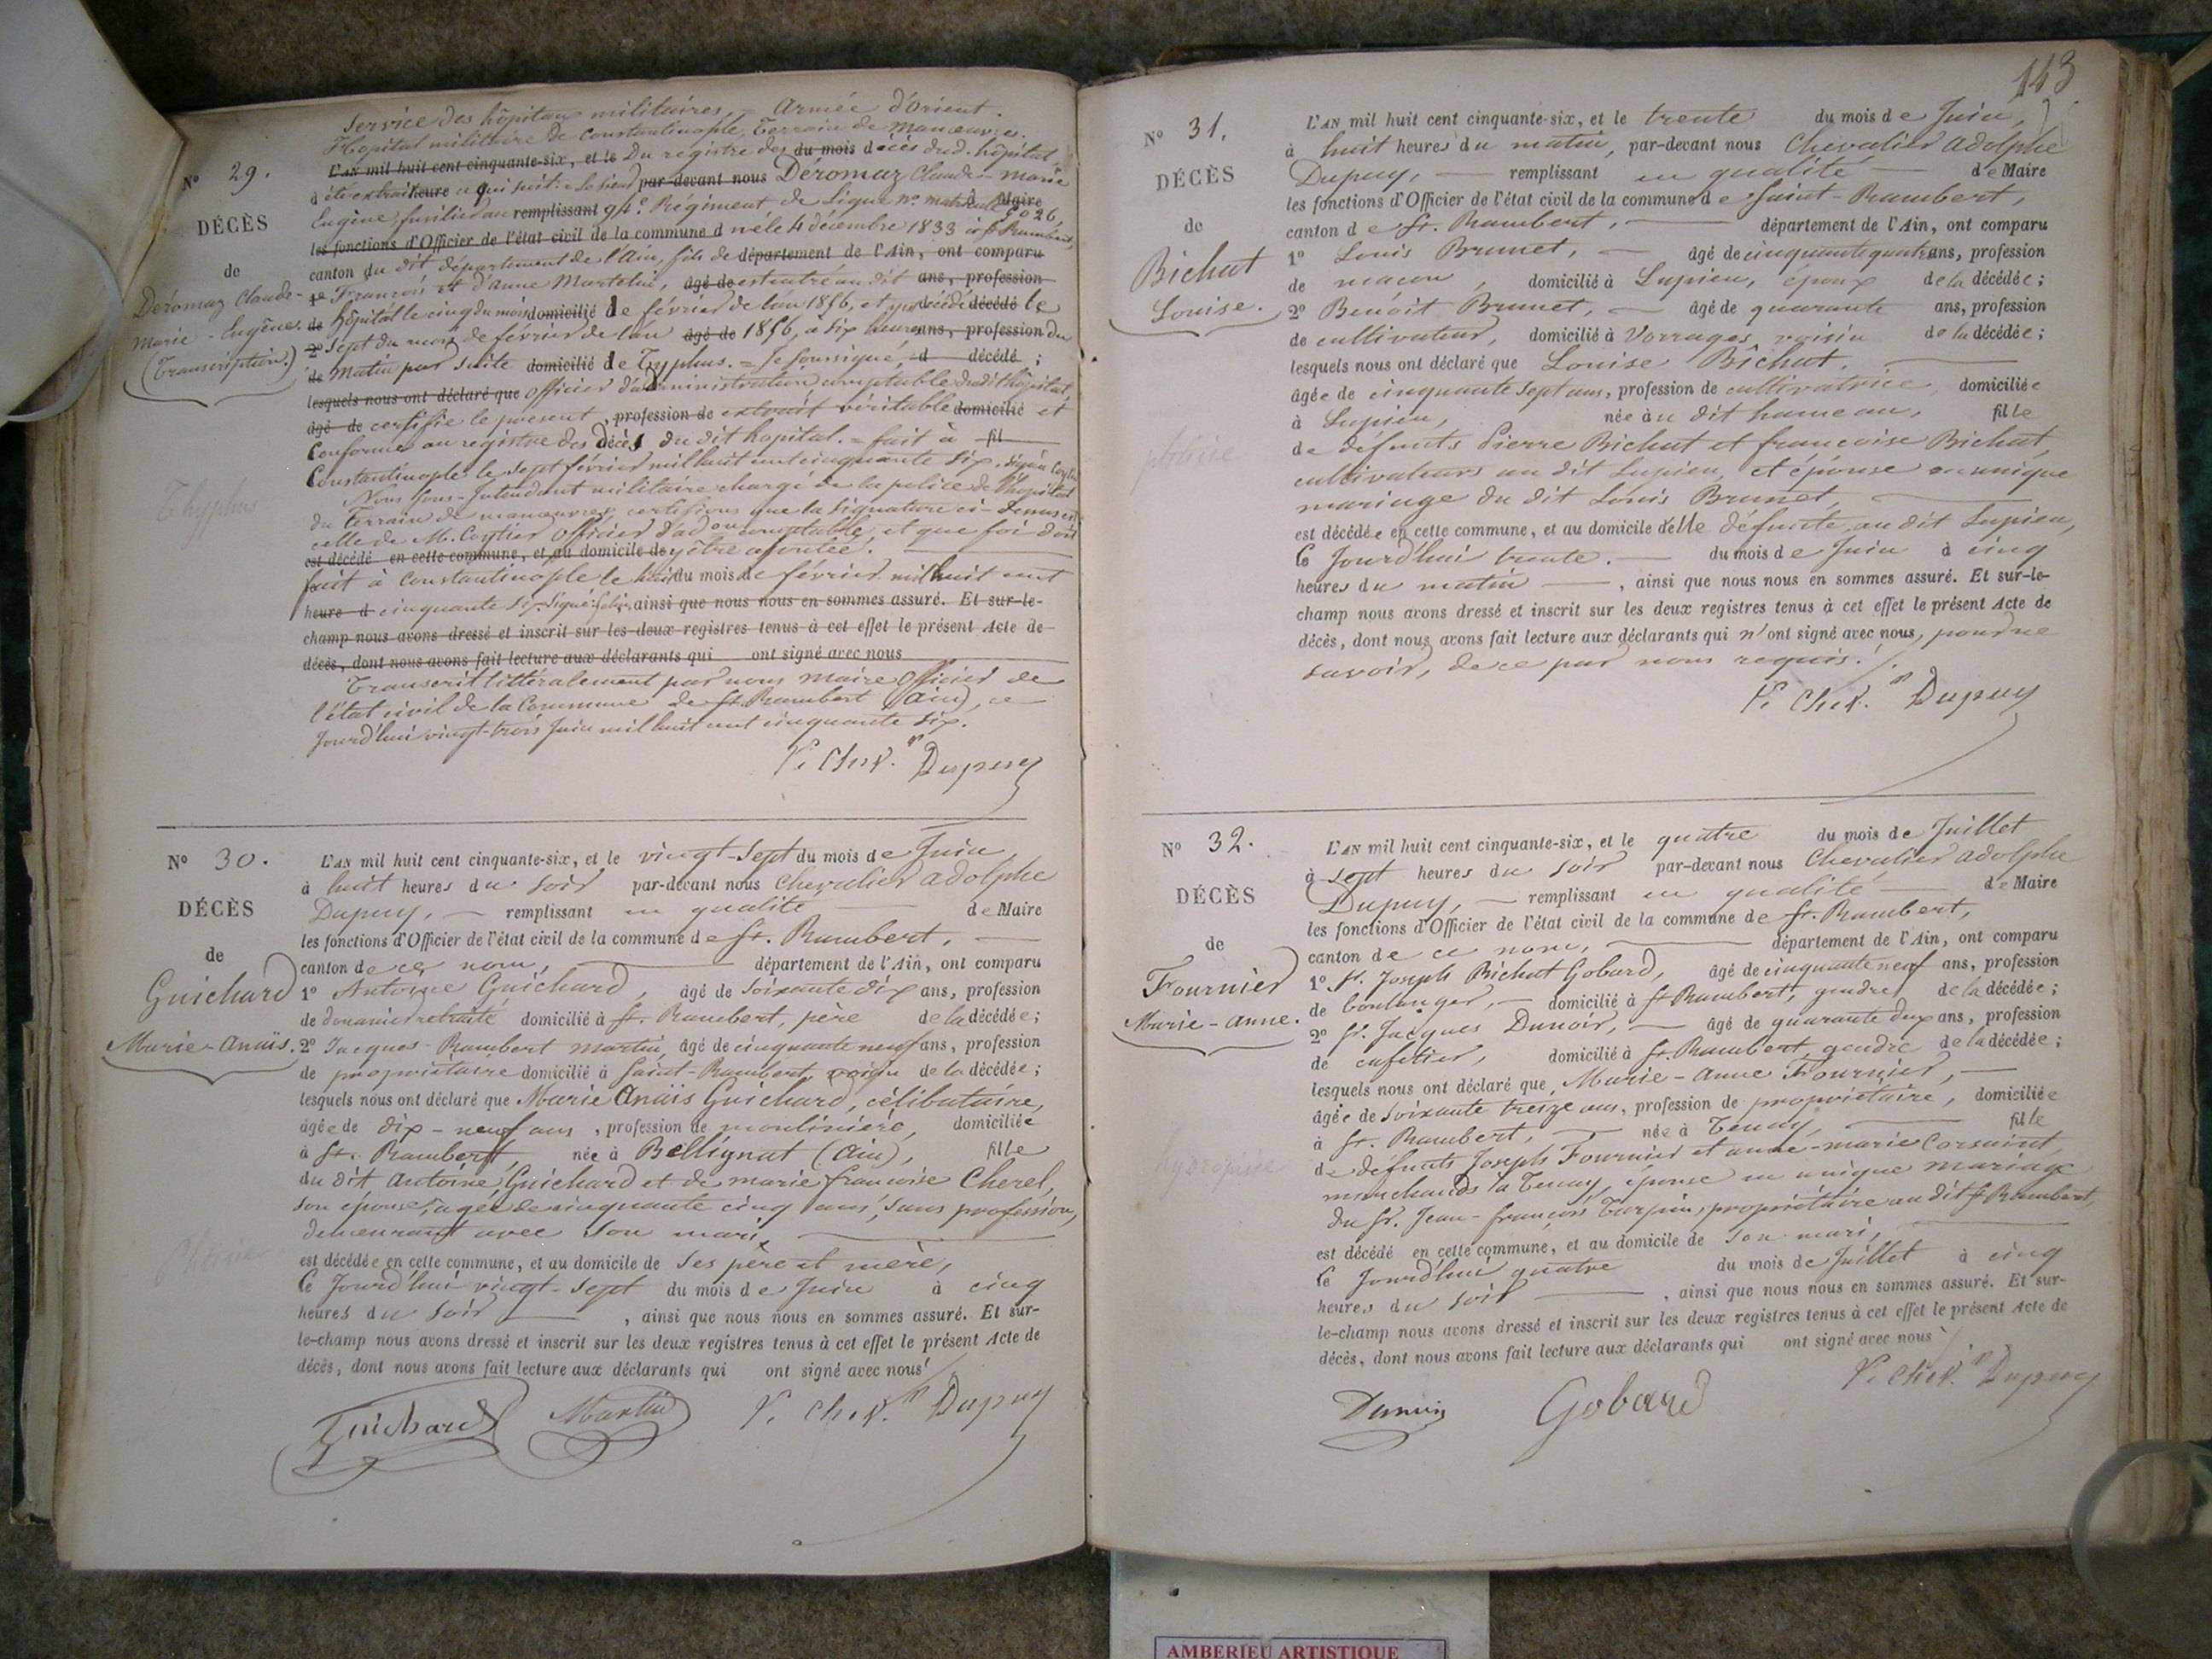 Service des hôpitaux militaires, = Armée d'Orient.
Hôpital militaire de Constantinople, Terrain de Manœuvres.
Nº 29.
L'AN mil huit cent cinquante-six, et le Du registre des du mois décès dud. hôpital,
a été extrait heure ce qui suit: = le sieur par-devant nous Déromaz Claude-Marie
Eugène, fusilier au remplissant 94e. Régiment de Ligne nº. matricule Maire 5026,
DÉCÈS
les fonctions d'Officier de l'état civil de la commune d né le 4 décembre 1833 à St. Rambert,
de
canton du dit, département de l'Ain, fils de département de l'Ain, ont comparu
Déromaz Claude-
Marie-Eugène.
(Transcription.)
1º François et d'Anne Martelin, âgé de est entré au dit ans, profession
de hôpital le cinq du mois domicilié de février de l'an 1856, et y décédé décédé le
2º Sept du mois de février de l'an âgé de 1856, à six heures ans, profession du
de matin par suite domicilié de Typhus. = Je soussigné, d décédé ;
lesquels nous ont déclaré que officier d'administration comptable du dit hôpital,
âgé de certifie le présent, profession de extrait véritable domicilié et
Conforme au registre des décès du dit hopital. = fait à fil
Constantinople le sept février mil huit cent cinquante six. signé:
Nous Sous-Intendant militaire chargé de la police de l'hôpital
Thyphus
du Terrain de manœuvres, certifions que la signature ci-dessus est
celle de M. Coytier officier d'adon comptable, et que foi doit
est décédé en cette commune, et au domicile de y être ajoutée.
fait à Constantinople le huit du mois de février mil huit cent
heure d cinquante six. signé: , ainsi que nous nous en sommes assuré. Et sur-le-
champ nous avons dressé et inscrit sur les deux registres tenus à cet effet le présent Acte de
décès, dont nous avons fait lecture aux déclarants qui ont signé avec nous
Transcrit littéralement par nous Maire Officier de
l'état civil de la Commune de St. Rambert (Ain), ce
jourd'hui vingt-trois Juin mil huit cent cinquante six.
Dupuy
Nº 30.
L'AN mil huit cent cinquante-six, et le vingt-sept du mois de Juin
à huit heures du soir par-devant nous Chevalier Adolphe
DÉCÈS
Dupuy, — remplissant en qualité — de Maire
les fonctions d'Officier de l'état civil de la commune de St. Rambert,
de
canton de ce nom, département de l'Ain, ont comparu
Guichard
1º Antoine Guichard, âgé de soixante dix ans, profession
de douanier retraité domicilié à St. Rambert, père de la décédée;
Marie-Anaïs.
2º Jacques-Rambert Martin, âgé de cinquante neuf ans, profession
de propriétaire domicilié à Saint-Rambert, voisin de la décédée;
lesquels nous ont déclaré que Marie Anaïs Guichard, célibataire,
âgée de dix-neuf ans, profession de moulinière, domiciliée
à St. Rambert, née à Bellignat (Ain), fille
du dit Antoine Guichard et de marie françoise Cherel,
son épouse, âgée de cinquante cinq ans, sans profession,
demeurant avec son mari,
Phtisie
est décédée en cette commune, et au domicile de ses père et mère,
Ce Jourd'hui vingt-sept du mois de Juin à cinq
heures du soir , ainsi que nous nous en sommes assuré. Et sur-
le-champ nous avons dressé et inscrit sur les deux registres tenus à cet effet le présent Acte de
décès, dont nous avons fait lecture aux déclarants qui ont signé avec nous
Guichard Martin Dupuy
143
Nº 31.
L'AN mil huit cent cinquante-six, et le trente du mois de Juin,
à huit heures du matin, par-devant nous Chevalier Adolphe
DÉCÈS
Dupuy, — remplissant en qualité — de Maire
les fonctions d'Officier de l'état civil de la commune de Saint-Rambert,
de
canton de St. Rambert, — département de l'Ain, ont comparu
Bichat
Louise.
1º Louis Brunet, — âgé de cinquante quatre ans, profession
de maçon, domicilié à Lupieu, époux de la décédée;
2º Benoit Brunet, — âgé de quarante ans, profession
de cultivateur, domicilié à Vorrages, voisin de la décédée;
lesquels nous ont déclaré que Louise Bichat,
âgée de cinquante sept ans, profession de cultivatrice, domiciliée
à Lupieu, née au dit hameau, fille
phtisie
de défunts Pierre Bichat et françoise Bichat,
cultivateurs au dit Lupieu, et épouse en unique
mariage du dit Louis Brunet,
est décédée en cette commune, et au domicile d'elle défunte au dit Lupieu,
Ce Jourd'hui trente. — du mois de Juin à cinq
heures du matin — , ainsi que nous nous en sommes assuré. Et sur-le-
champ nous avons dressé et inscrit sur les deux registres tenus à cet effet le présent Acte de
décès, dont nous avons fait lecture aux déclarants qui n'ont signé avec nous, pour ne
savoir, de ce par nous requis.
Dupuy
Nº 32.
L'AN mil huit cent cinquante-six, et le quatre du mois de Juillet
à sept heures du soir par-devant nous Chevalier Adolphe
DÉCÈS
Dupuy, — remplissant en qualité — de Maire
les fonctions d'Officier de l'état civil de la commune de St. Rambert,
de
canton de ce nom, département de l'Ain, ont comparu
Fournier
1º Sr. Joseph Bichat Gobard, âgé de cinquante neuf ans, profession
de boulanger, — domicilié à St Rambert, gendre de la décédée;
Marie-Anne.
2º Sr. Jacques Dunoir, — âgé de quarante deux ans, profession
de cafetier, domicilié à St. Rambert, gendre de la décédée;
lesquels nous ont déclaré que Marie-Anne Fournier,
âgée de soixante treize ans, profession de propriétaire, domiciliée
à St. Rambert, née à Tenay, fille
hydropisie
de défunts Joseph Fournier et anne-marie Corsaint,
marchands à Tenay, épouse en unique mariage
du Sr. Jean-françois Turpin, propriétaire au dit St Rambert,
est décédé en cette commune, et au domicile de son mari,
Ce Jourd'hui quatre du mois de Juillet à cinq
heures du soir — , ainsi que nous nous en sommes assuré. Et sur-
le-champ nous avons dressé et inscrit sur les deux registres tenus à cet effet le présent Acte de
décès, dont nous avons fait lecture aux déclarants qui ont signé avec nous
Dupuy
Gobard
AMBERIEU ARTISTIQUE